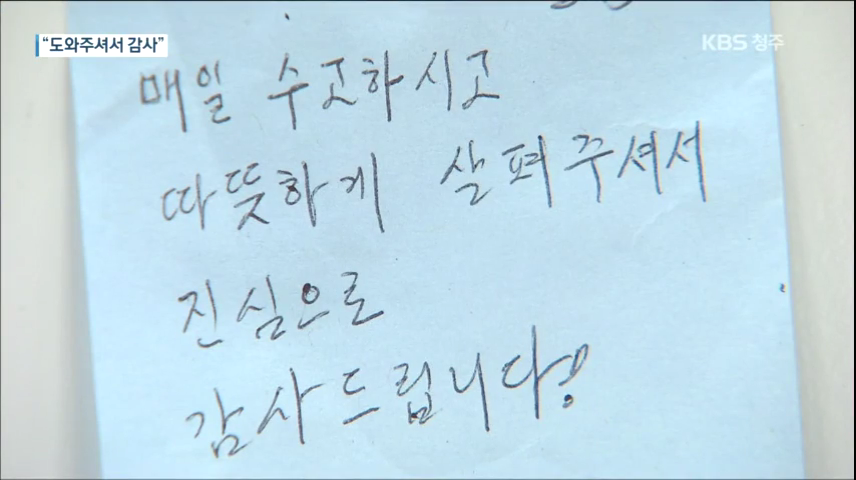 "도와주셔서 감사"
KBS 청주
매일 수고하시고
따뜻하게 살펴주셔서
진심으로
감사드립니다!